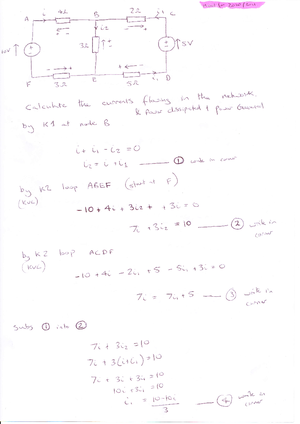 A 4Ω B 2Ω C
i i₂ i₁
10V 3Ω 5V
F 3Ω E 5Ω D
Calculate the currents flowing in the network
& Power dissipated & Power Generated
by K1 at node B
i + i₁ - i₂ = 0
i₂ = i + i₁ ① write in corner
by K2 loop ABEF (start at F)
(KVL)
-10 + 4i + 3i₂ + 3i = 0
7i + 3i₂ = 10 ② write in corner
by K2 loop ACDF
(KVL)
-10 + 4i - 2i₁ + 5 - 5i₁ + 3i = 0
7i = 7i₁ + 5 ③ write in corner
Subs ① into ②
7i + 3i₂ = 10
7i + 3(i+i₁) = 10
7i + 3i + 3i₁ = 10
10i + 3i₁ = 10
i₁ = 10-10i ④ write in corner
3